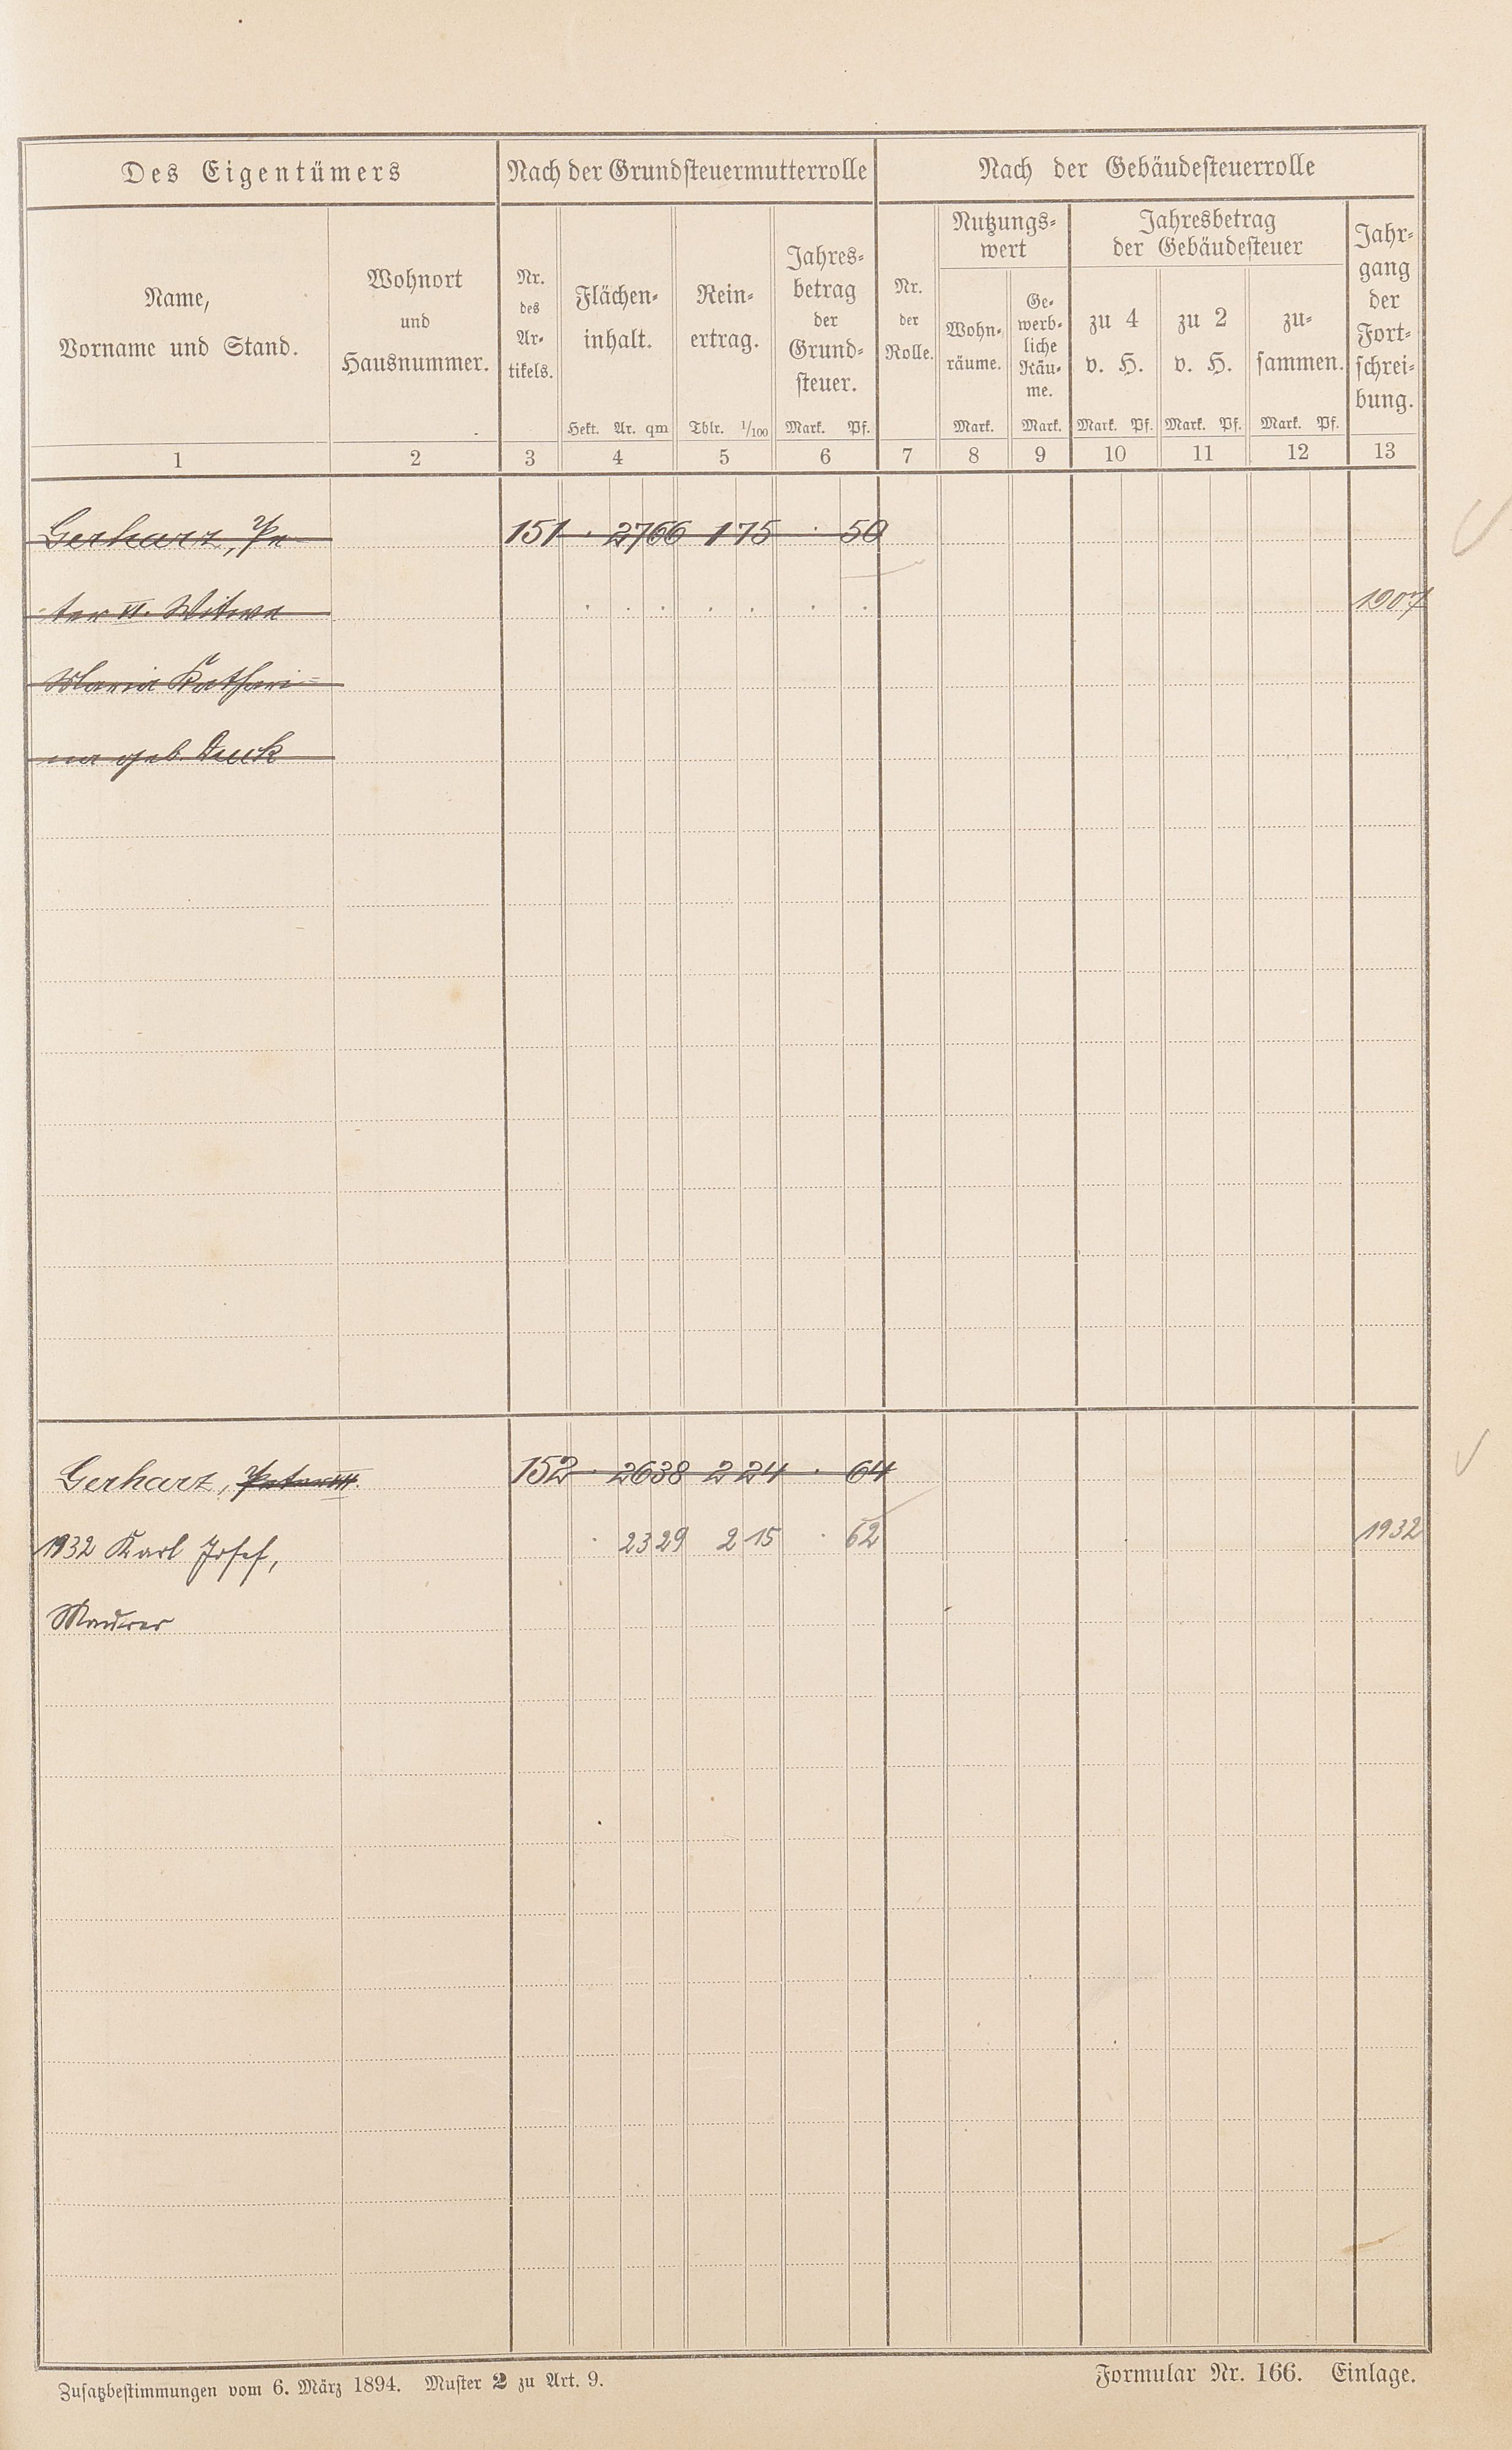 Des Eigentümers
Nach der Grundsteuermutterrolle
Nach der Gebäudesteuerrolle
Name,
Vorname und Stand.
Wohnort
und
Hausnummer.
Nr.
des
Ar-
tikels.
Flächen-
inhalt.
Hekt. Ar. qm
Rein-
ertrag.
Thlr. 1/100
Jahres-
betrag
der
Grund-
steuer.
Mark. Pf.
Nr.
der
Rolle.
Nutzungs-
wert
Wohn-
räume.
Mark.
Ge-
werb-
liche
Räu-
me.
Mark.
Jahresbetrag
der Gebäudesteuer
zu 4
v. H.
Mark. Pf.
zu 2
v. H.
Mark. Pf.
zu-
sammen.
Mark. Pf.
Jahr-
gang
der
Fort-
schrei-
bung.
1 2 3 4 5 6 7 8 9 10 11 12 13
Gerharz, Pe 151 . 27 66 1 75 . 50
ter VI. Witwe . . . . . . . 1907
Maria Kathari=
na geb. Duck
Gerharz, Peter III. 152 . 26 38 2 24 . 64
1932 Karl Josef, . 23 29 2 15 . 62 1932
Maurer
Zusatzbestimmungen vom 6. März 1894. Muster 2 zu Art. 9.
Formular Nr. 166. Einlage.